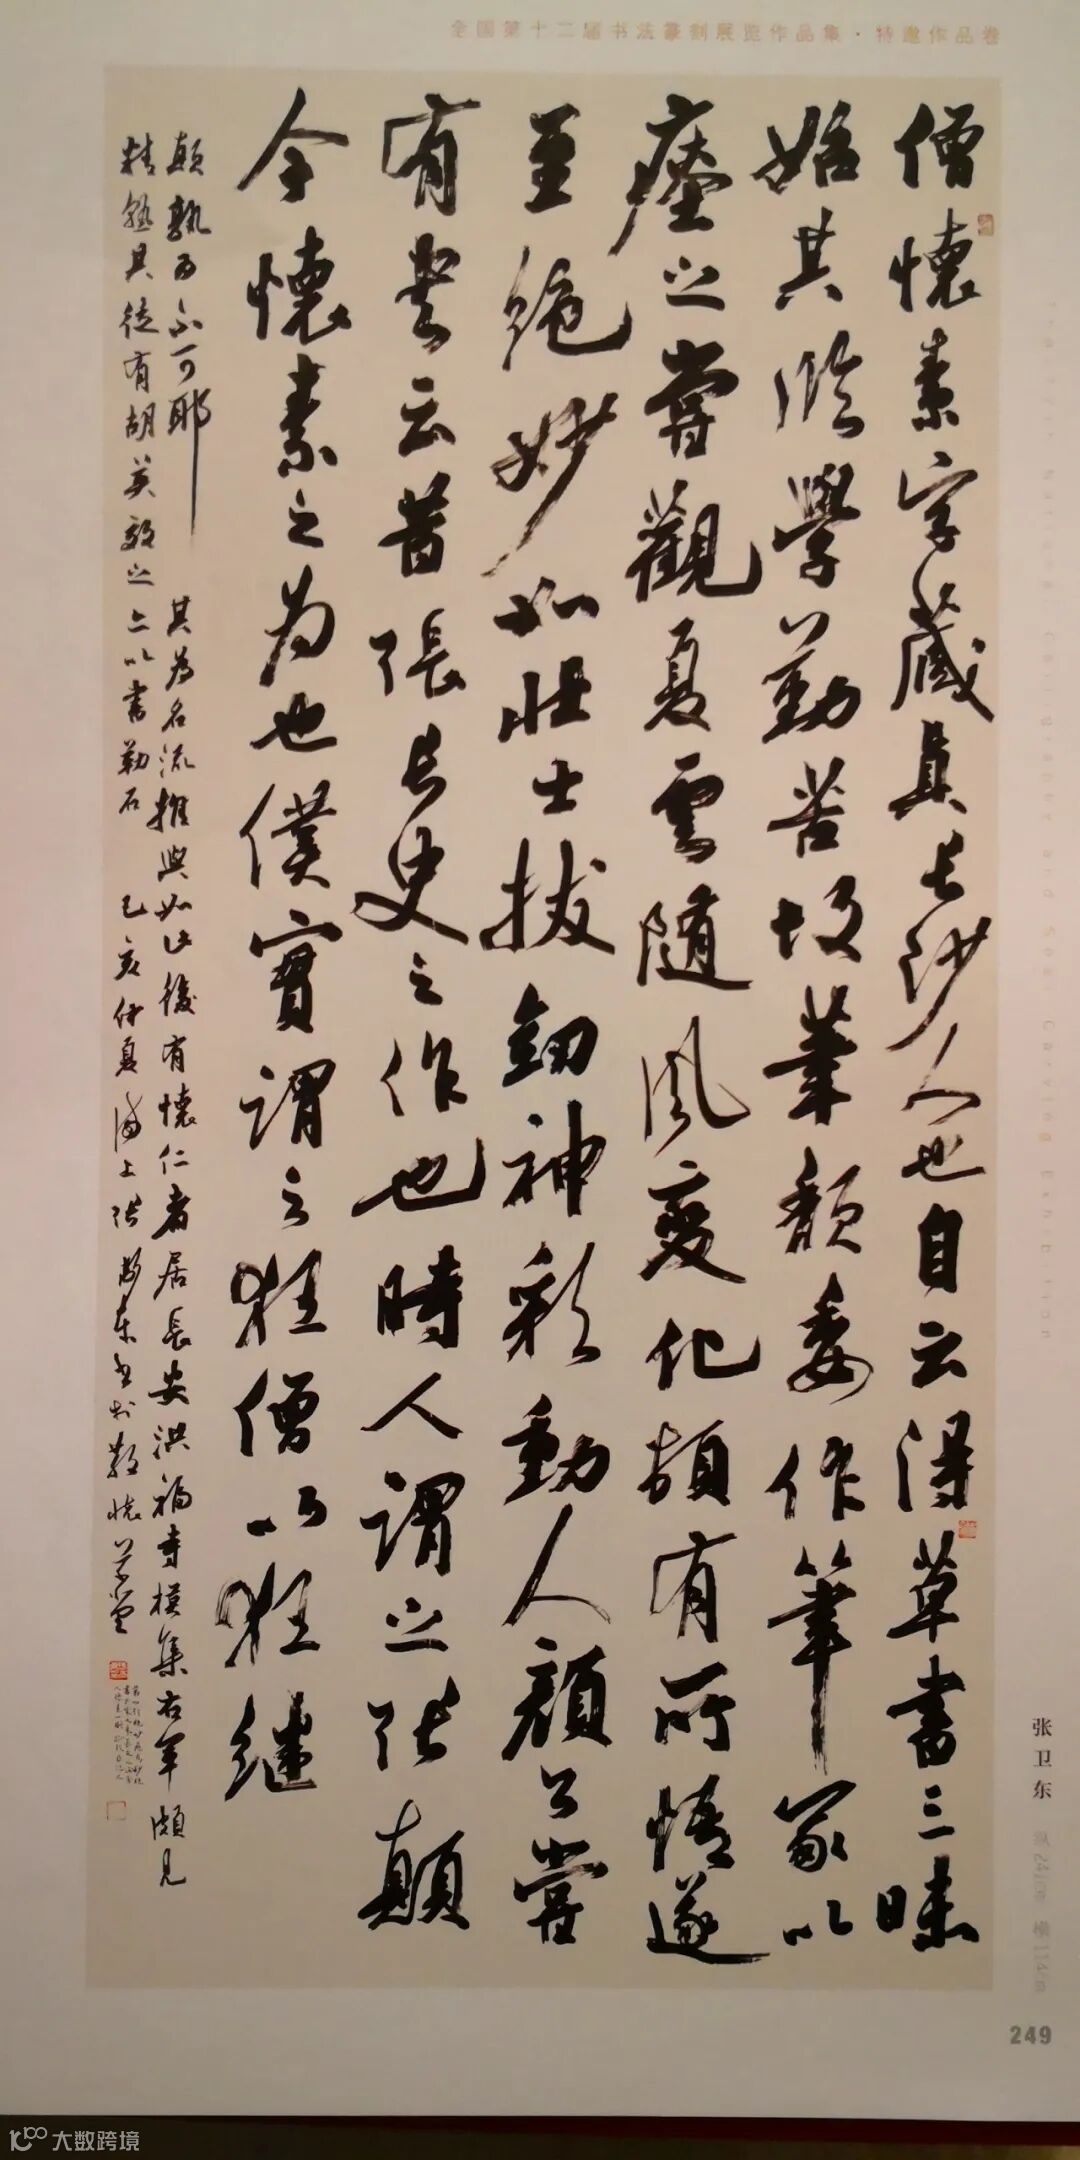 全国第十二届书法篆刻展览作品集·特邀作品卷
僧懷素字藏真長沙人也自云得草書三昧
始其臨學勤苦故筆頹委作筆冢以
瘞之嘗觀夏雲隨風變化頓有所悟遂
至絶妙如壯士拔劍神彩動人顏公嘗
有書云昔張長史之作也時人謂之張顛
今懷素之為也僕實謂之狂僧以狂繼
顛孰為不可耶 其為名流推與如此後有懷仁者居長安洪福寺模集右軍頗見
精熟其徒有胡英效之亦以書勒石 己亥仲夏海上張衛東書於散懷草堂
张卫东
纵241cm 横114cm
249
The 12th National Calligraphy and Seal Carving Exhibition
大数跨境